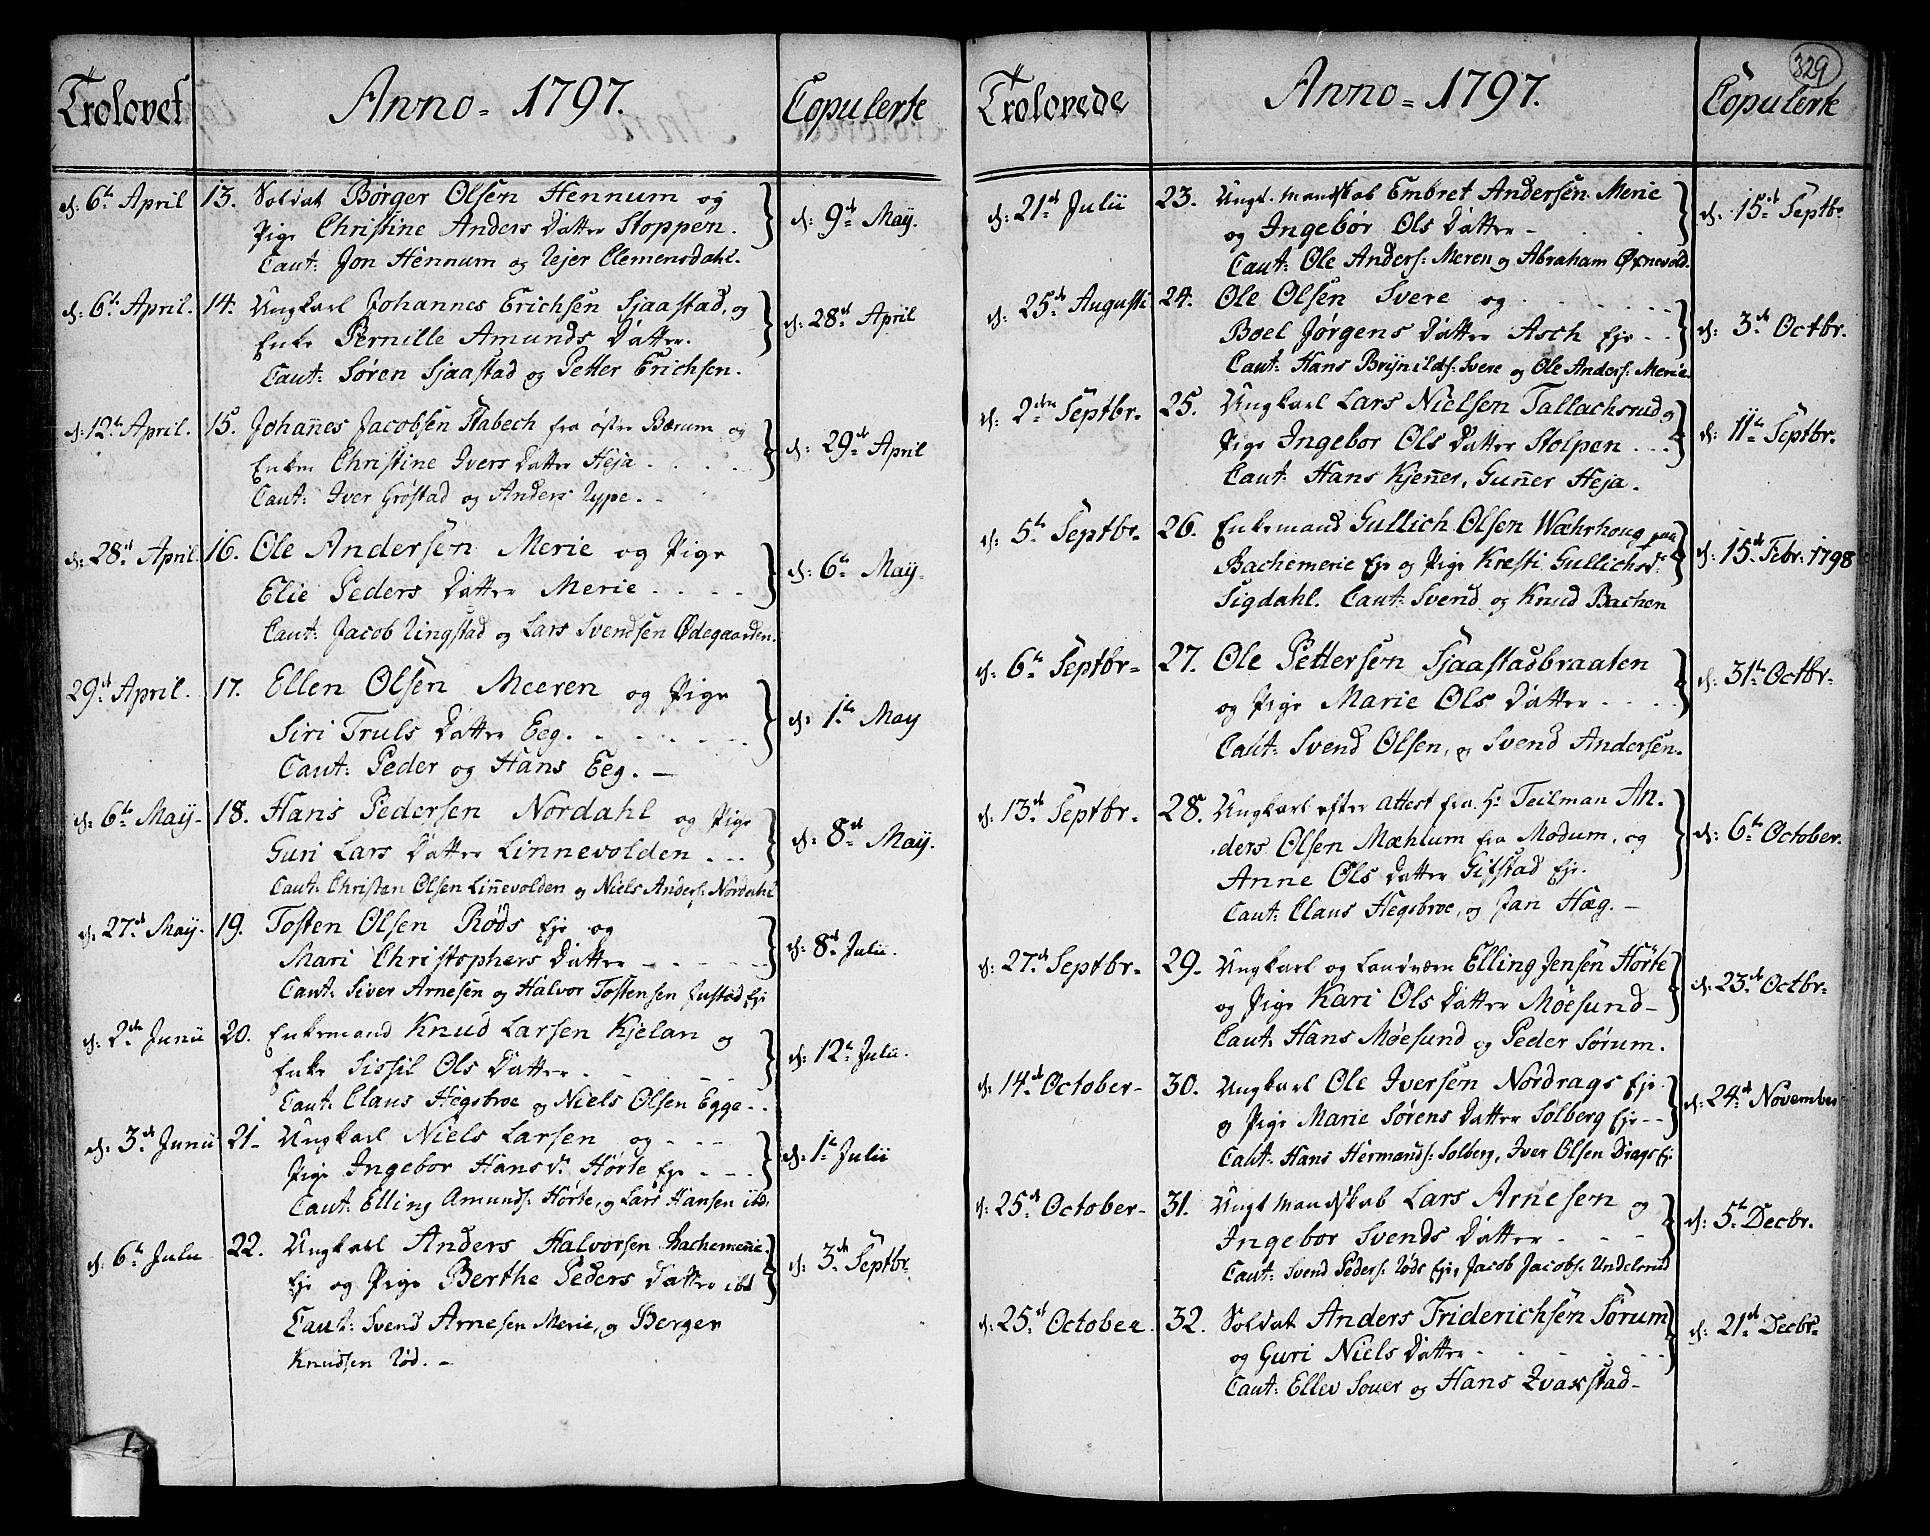 Trolovet
Anno = 1797.
Copulerte
d: 6te April 13. Soldat Børger Olsen Hennum og
Pige Christine Anders Datter Stoppen.
Caut: Jon Hennum og Ejer Clemensdahl.
d: 9de Maÿ.
d: 6te April. 14. Ungkarl Johannes Erichsen Sjaastad, og
Enke Pernille Amunds Datter.
Caut: Søren Sjaastad og Petter Erichsen.
d: 28de April
d: 12te April. 15. Johannes Jacobsen Stabech fra østre Bærum og
Enken Christine Ivers Datter Heja.
Caut: Iver Grøstad og Anders Rype.
d: 29de April
d: 28de April 16. Ole Andersen Merie og Pige
Elie Peders Datter Merie
Caut: Jacob Ringstad og Lars Svendsen Ødegaarden.
d: 6te Maÿ.
29de April. 17. Ellen Olsen Meeren og Pige
Siri Truls Datter Eeg.
Caut: Peder og Hans Eeg. —
d: 1te May
d: 6te May 18. Hans Pedersen Nordahl og Pige
Guri Lars Datter Linnevolden
Caut: Christen Olsen Linnevolden og Niels Anders: Nordahl
d: 8de Maÿ.
d: 27de May. 19. Tosten Olsen Røds Eje og
Mari Christophers Datter
Caut: Siver Arnesen og Halvor Tostensen Justad Eje
d: 8de Julii.
d: 2den Junii 20. Enkemand Knud Larsen Kjelan og
Enke Sissil Ols Datter.
Caut: Claus Hegsbroe og Niels Olsen Egge.
d: 12te Julii.
d: 3de Junii 21 Ungkarl Niels Larsen og
Pige Ingebor Hans D: Hørte Eje
Caut: Elling Amunds: Hørte, og Lars Hansen ibd.
d: 1te Julii
d: 6te Julii 22. Ungkarl Anders Halvorsen Bachemerie
Eje og Pige Berthe Peders Datter ibd
Caut: Svend Arnesen Merie, og Berger
Knudsen Rød. —
d: 3de Septbr.
329
Trolovede
Anno = 1797.
Copulerte
d: 21de Julii 23. Ungt mandskab Embret Andersen Merie
og Ingebør Ols Datter
Caut: Ole Anders: Meren og Abraham Øxnevold.
d. 15de Septbr
d: 25de Augusti 24. Ole Olsen Svere og
Boel Jørgens Datter Asch Eje
Caut: Hans Brÿnilds: Svere og Ole Anders: Merie.
d: 3de Octbr.
d: 2den Septbr. 25. Ungkarl Lars Nielsen Tallachsrud og
Pige Ingebor Ols Datter Stolpen
Caut: Hans Kjenner, Gunner Heja.
d: 11te Septbr.
d: 5te Septbr. 26. Enkemand Gullich Olsen Wæhrhoug paa
Bachemerie Eje og Pige Kresti Gullichs D:
Sigdahl. Caut: Svend og Knud Bachen
d: 15de Febr: 1798
d: 6te Septbr 27. Ole Pettersen Sjaastadbraaten
og Pige Marie Ols Datter
Caut: Svend Olsen, og Svend Andersen.
d: 31te Octbr
d: 13de Septbr. 28. Ungkarl efter Attest fra Hr Teilman An-
ders Olsen Mæhlum fra Modum, og
Anne Ols Datter Gifstad Eje.
Caut: Claus Hegsbroe, og Jan Hæg. —
d: 6te October.
d: 27de Septbr. 29. Ungkarl og Landværn Elling Jensen Hörte
og Pige Kari Ols Datter Möesund
Caut: Hans Møesund og Peder Sørum.
d: 23de Octbr
d: 14de October 30. Ungkarl Ole Iversen Nordrags Eje
og Pige Marie Sørens Datter Solberg Eje
Caut: Hans Hermands: Solberg, Iver Olsen Drags Ej
d: 24de November
d: 25de October 31. Ungt Mandskab Lars Arnesen og
Ingebor Svends Datter
Caut: Svend Peders: Røds Eje, Jacob Jacobs: Undelsrud
d: 5te Decbr.
d: 25de October 32. Soldat Anders Friderichsen Sørum
og Guri Niels Datter
Caut: Ellev Souer og Hans Qvaxstad
d: 21de Decbr